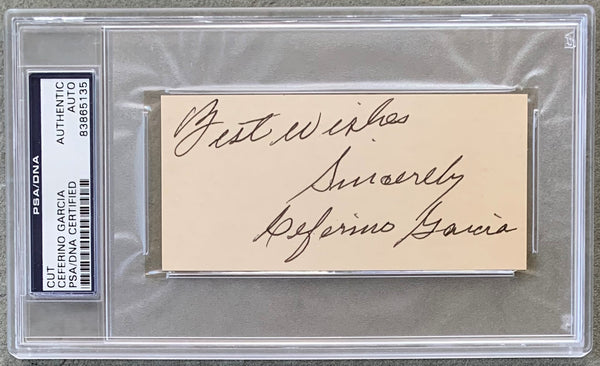 PSA/DNA
CUT
CEFERINO GARCIA
PSA/DNA CERTIFIED
AUTHENTIC
AUTO
83865135
Best wishes
Sincerely
Ceferino Garcia